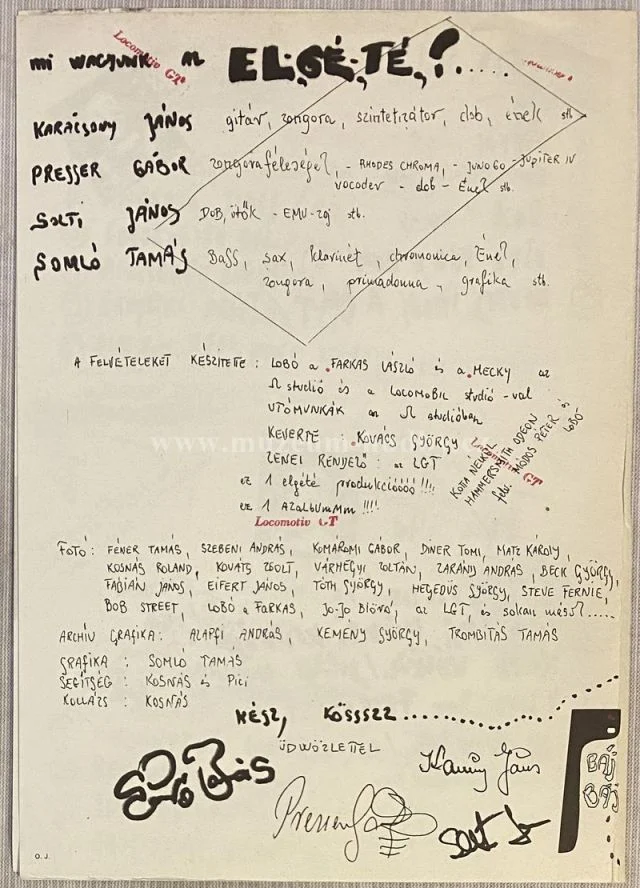 Mi vagyunk az EL·GÉ·TÉ, ?.....
Locomotiv GT
KARÁCSONY JÁNOS gitár, zongora, szintetizátor, dob, ének stb
PRESSER GÁBOR zongoraféleségek, - RHODES CHROMA, - JUNO 60 - JUPITER IV
vocoder - dob - Ének stb.
SOLTI JÁNOS DOB, ütők - EMU-zaj stb.
SOMLÓ TAMÁS BASS, sax, klarinét, chromonica, Ének,
zongora, primadonna, grafika stb.
A FELVÉTELEKET KÉSZITETTE : LOBÓ a FARKAS LÁSZLÓ és a MECKY az
Ω studió és a LOCOMOBIL studió -val
UTÓMUNKÁK az Ω studióban
KEVERTE : KOVÁCS GYÖRGY
ZENEI RENDEZŐ : az LGT
ez 1 elgété produkcióóóó !!!!
ez 1 AZALBUMMM !!!!
KOTTA NÉLKÜL
HAMMERSMITH ODEON
felv. MÓDOS PÉTER és
LOBÓ
Locomotiv GT
Locomotiv GT
www.muzeum
FOTÓ : FÉNER TAMÁS, SZEBENI ANDRÁS, KOMÁROMI GÁBOR, DINER TOMI, MATZ KÁROLY,
KOSNÁS ROLAND, KOVÁTS ZSOLT, VÁRHEGYI ZOLTÁN, ZARÁND ANDRÁS, BECK GYÖRGY,
FÁBIÁN JÁNOS, EIFERT JÁNOS, TÓTH GYÖRGY, HEGEDÜS GYÖRGY, STEVE FERNIE,
BOB STREET, LOBÓ a FARKAS, JO-JO az LGT, és sokan mások.....
ARCHIV GRAFIKA : ALAPFI ANDRÁS, KEMÉNY GYÖRGY, TROMBITÁS TAMÁS
GRAFIKA : SOMLÓ TAMÁS
SEGITSÉG : KOSNÁS és Pici
KOLLÁZS : KOSNÁS
KÉSZ, KÖSSSZZ..............
ÜDVÖZLETTEL
Somló Tamás
Karácsony János
Presser Gábor
Solti J
BÁJ
BÁJ
O. J.